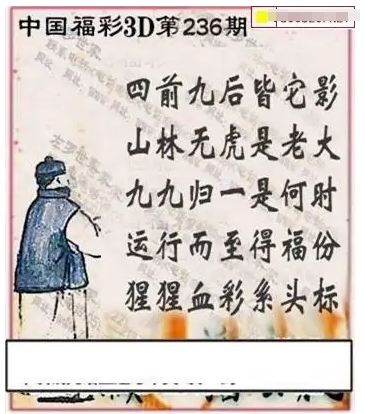 中国福彩3D第236期
四前九后皆它影
山林无虎是老大
九九归一是何时
运行而至得福份
猩猩血彩系头标